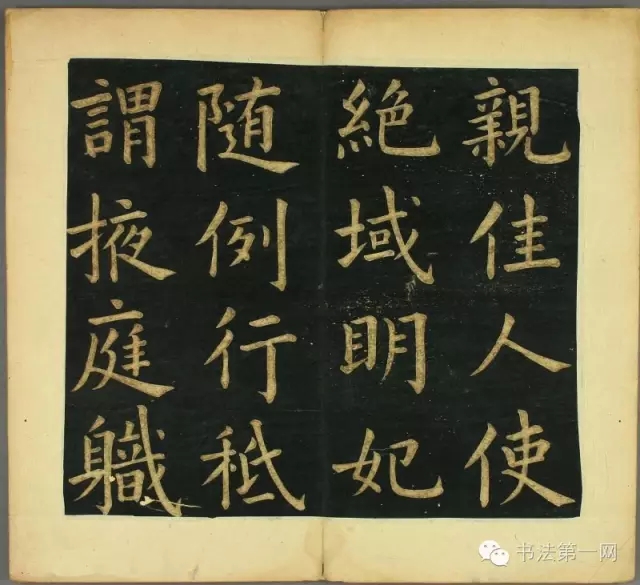 親佳人使
絶域明妃
随例行秪
謂掖庭軄
书法第一网